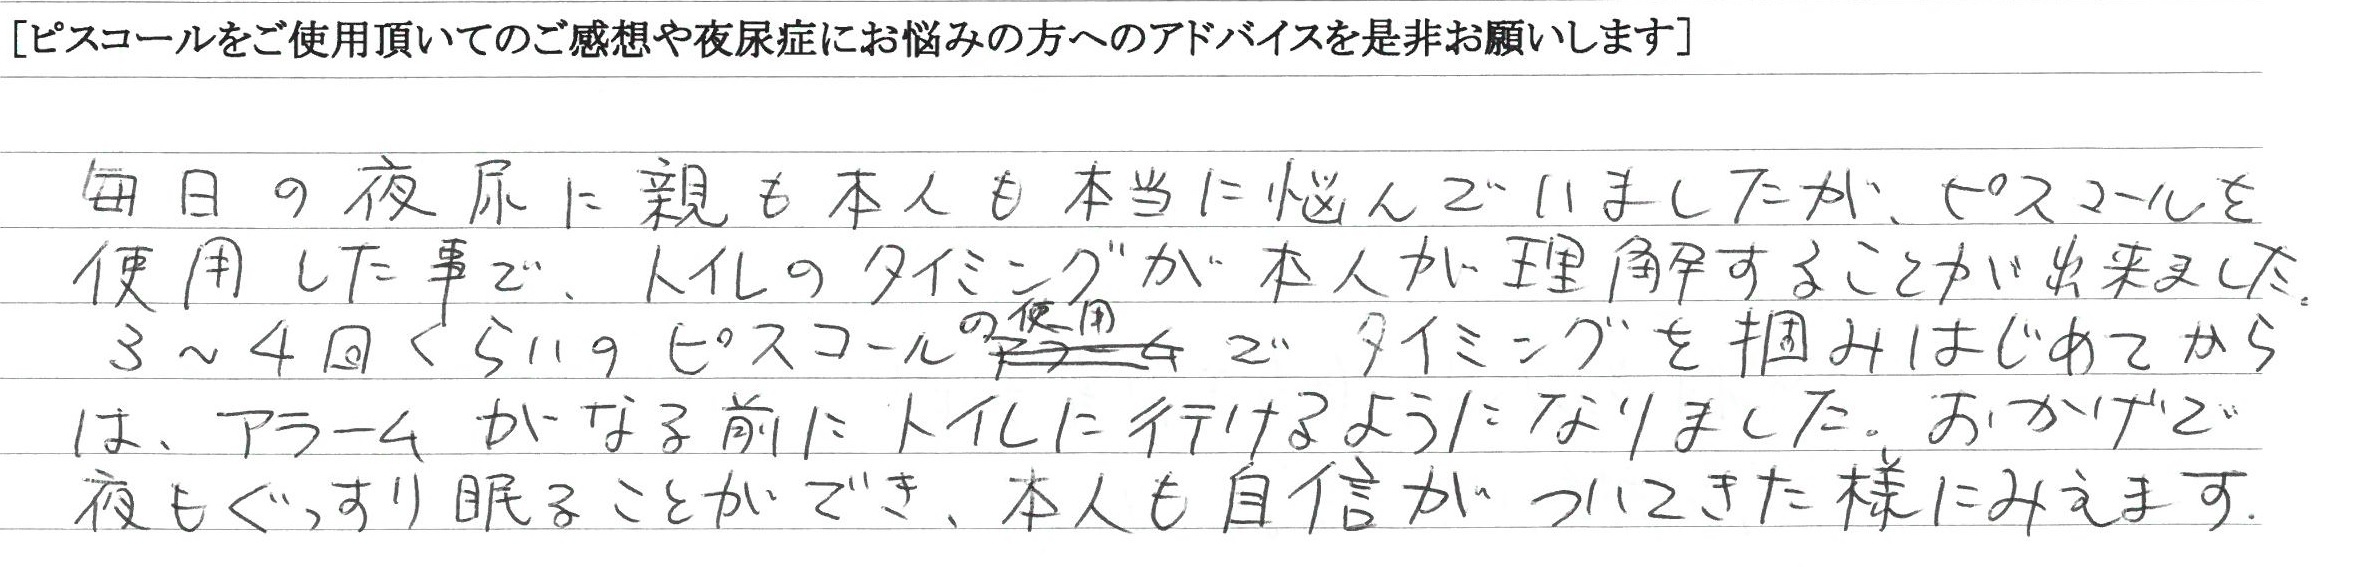 [ピスコールをご使用頂いてのご感想や夜尿症にお悩みの方へのアドバイスを是非お願いします]
毎日の夜尿に親も本人も本当に悩んでいましたが、ピスコールを
使用した事で、トイレのタイミングが本人が理解することが出来ました。
3〜4回くらいのピスコールの使用でタイミングを掴みはじめてから
は、アラームがなる前にトイレに行けるようになりました。おかげで
夜もぐっすり眠ることができ、本人も自信がついてきた様にみえます.